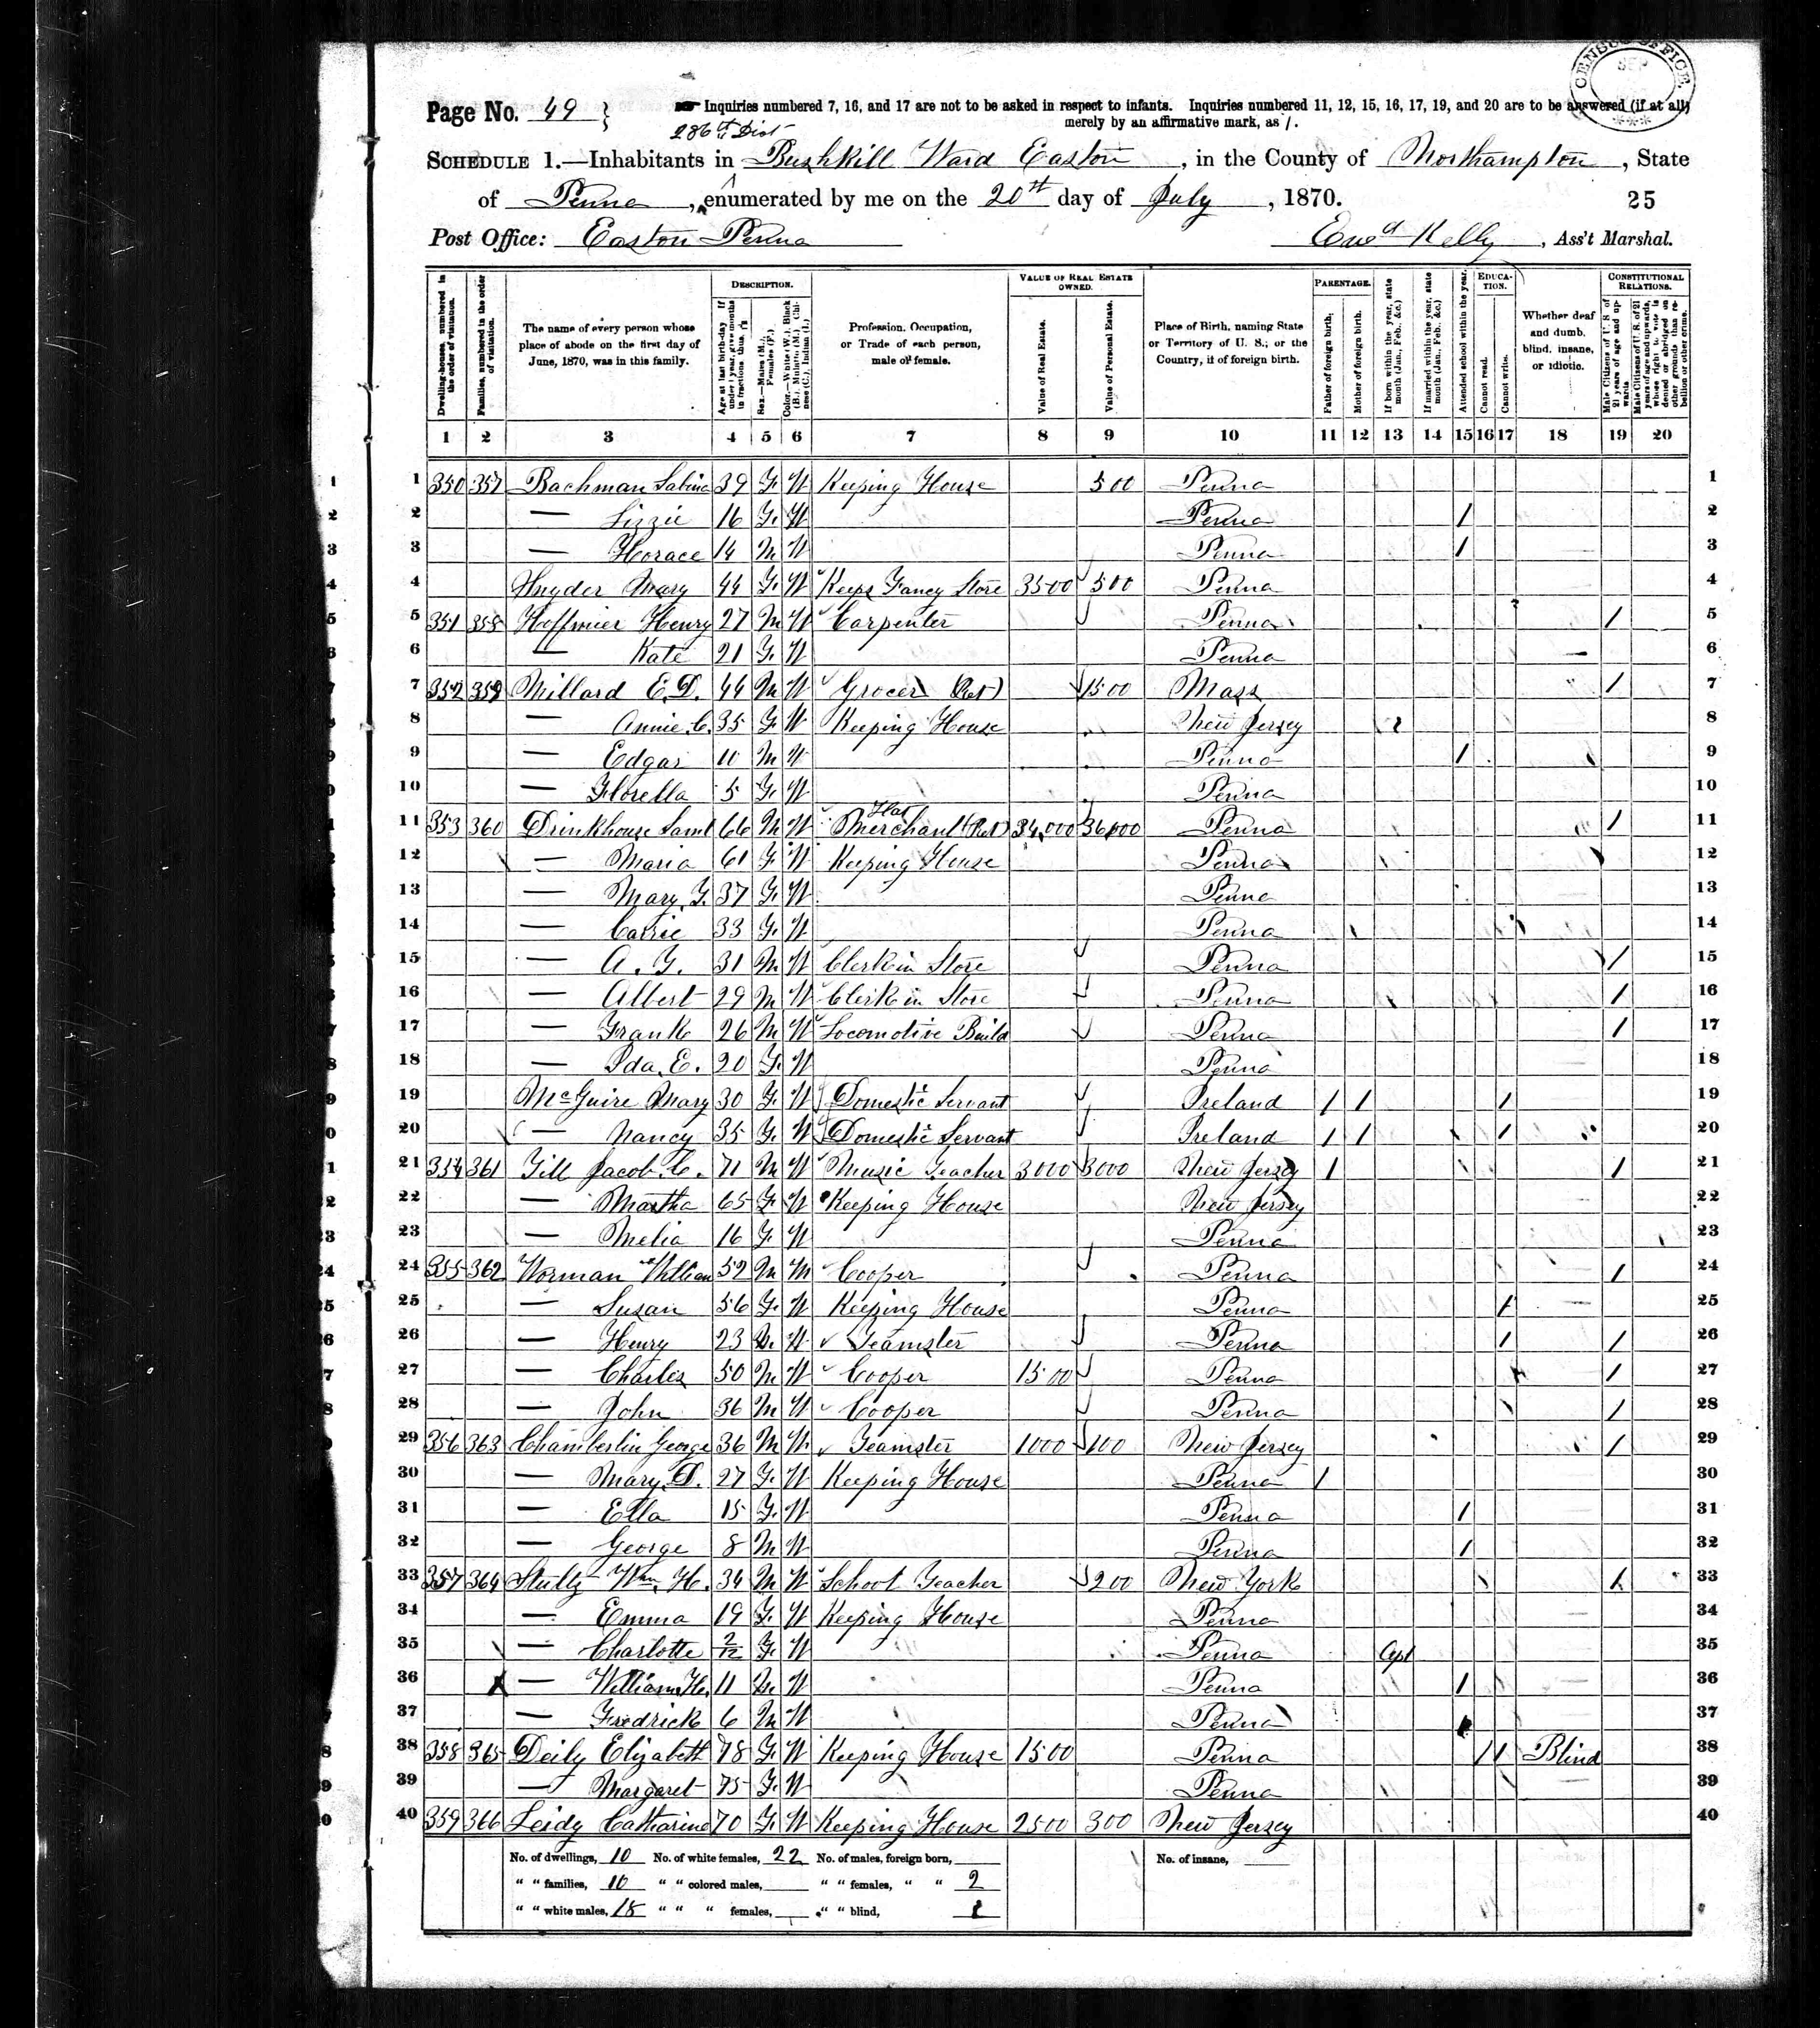 CENSUS OFFICE SEP
Page No. 49 } Inquiries numbered 7, 16, and 17 are not to be asked in respect to infants. Inquiries numbered 11, 12, 15, 16, 17, 19, and 20 are to be answered (if at all)
merely by an affirmative mark, as /.
286th Dist
SCHEDULE 1.—Inhabitants in Bushkill Ward Easton, in the County of Northampton, State
of Penna, enumerated by me on the 20th day of July, 1870. 25
Post Office: Easton Penna Edwd Kelly, Ass't Marshal.
DESCRIPTION. VALUE OF REAL ESTATE OWNED. PARENTAGE. EDUCATION. CONSTITUTIONAL RELATIONS.
Dwelling-houses, numbered in the order of visitation.
Families, numbered in the order of visitation.
The name of every person whose place of abode on the first day of June, 1870, was in this family.
Age at last birth-day. If under 1 year, give months in fractions, thus, 3/12
Sex.—Males (M.), Females (F.)
Color.—White (W.), Black (B.), Mulatto (M.), Chinese (C.), Indian (I.)
Profession, Occupation, or Trade of each person, male or female.
Value of Real Estate.
Value of Personal Estate.
Place of Birth, naming State or Territory of U. S.; or the Country, if of foreign birth.
Father of foreign birth.
Mother of foreign birth.
If born within the year, state month (Jan., Feb., &c.)
If married within the year, state month (Jan., Feb., &c.)
Attended school within the year.
Cannot read.
Cannot write.
Whether deaf and dumb, blind, insane, or idiotic.
Male Citizens of U. S. of 21 years of age and upwards
Male Citizens of U. S. of 21 years of age and upwards, whose right to vote is denied or abridged on other grounds than rebellion or other crime.
1 2 3 4 5 6 7 8 9 10 11 12 13 14 15 16 17 18 19 20
1 350 357 Bachman Sabina 39 F. W Keeping House 500 Penna 1
2 — Lizzie 16 F. W Penna / 2
3 — Horace 14 M W Penna / 3
4 Snyder Mary 44 F. W Keeps Fancy Store 3500 500 Penna 4
5 351 358 Hoffmier Henry 27 M W Carpenter Penna / 5
6 — Kate 21 F. W Penna 6
7 352 359 Millard E. D. 44 M W Grocer (Ret) 1500 Mass / 7
8 — Annie C. 35 F. W Keeping House New Jersey 8
9 — Edgar 10 M W Penna / 9
10 — Florella 5 F. W Penna 10
11 353 360 Drinkhouse Saml 66 M W Hat Merchant (Ret) 34,000 36,000 Penna / 11
12 — Maria 61 F. W Keeping House Penna 12
13 — Mary F. 37 F. W Penna 13
14 — Carrie 33 F. W Penna 14
15 — A. F. 31 M W Clerk in Store Penna / 15
16 — Albert 29 M W Clerk in Store Penna / 16
17 — Frank 26 M W Locomotive Build Penna / 17
18 — Ida E. 20 F. W Penna 18
19 McGuire Mary 30 F. W Domestic Servant Ireland / / / 19
20 — Nancy 35 F. W Domestic Servant Ireland / / / 20
21 354 361 Till Jacob C. 71 M W Music Teacher 3000 3000 New Jersey / / 21
22 — Martha 65 F. W Keeping House New Jersey 22
23 — Melia 16 F. W Penna 23
24 355 362 Worman William 52 M W Cooper Penna / 24
25 — Susan 56 F. W Keeping House Penna / 25
26 — Henry 23 M. W Teamster Penna / / 26
27 — Charles 50 M W Cooper 1500 Penna / 27
28 — John 36 M W Cooper Penna / 28
29 356 363 Chamberlin George 36 M W. Teamster 1000 100 New Jersey / 29
30 — Mary D. 27 F. W Keeping House Penna / 30
31 — Ella 15 F. W Penna / 31
32 — George 8 M W Penna / 32
33 357 364 Stultz Wm H. 34 M W School Teacher 200 New York / 33
34 — Emma 19 F. W Keeping House Penna 34
35 — Charlotte 2/12 F. W Penna Apl 35
36 — William H. 11 M. W Penna / 36
37 — Fredrick 6 M W Penna / 37
38 358 365 Deily Elizabeth 78 F. W Keeping House 1500 Penna / / Blind 38
39 — Margaret 75 F. W Penna 39
40 359 366 Leidy Catharine 70 F. W Keeping House 2500 300 New Jersey 40
No. of dwellings, 10 No. of white females, 22 No. of males, foreign born, No. of insane,
" " families, 10 " " colored males, " " females, " " 2
" " white males, 18 " " " females, " " blind, 1